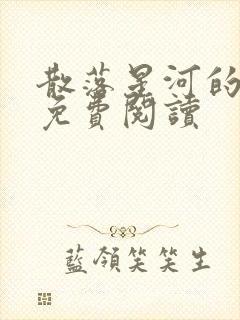 散落星河的
免費閱讀
藍領笑笑生